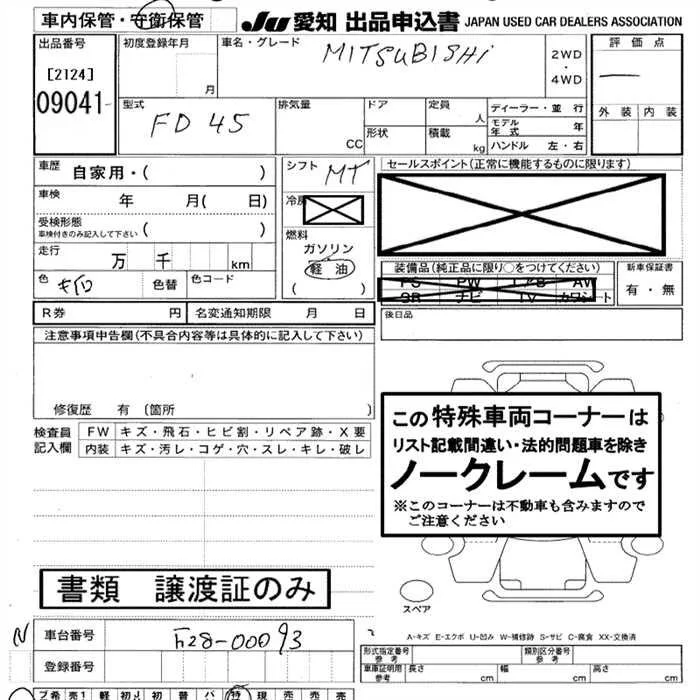 車内保管・守衛保管 JU 愛知 出品申込書 JAPAN USED CAR DEALERS ASSOCIATION
出品番号 初度登録年月 車名・グレード MITSUBISHI 2WD・4WD 評価点
[2124] 月
09041 型式 FD 45 排気量 CC ドア 定員 人 ディーラー・並 行 外装 内装
形状 積載 kg モデル年式 年
ハンドル 左・右
車歴 自家用・( ) シフト MT セールスポイント(正常に機能するものに限ります)
車検 年 月( 日) 冷房
受検形態 車検付きのみ記入して下さい ( )
燃料 ガソリン
走行 万 千 km 軽油 装備品(純正品に限り○をつけてください) 新車保証書
色 色替 色コード ( ) PS PW エアB AW 有・無
SR ナビ TV カワシート
R券 円 名変通知期限 月 日 後日品
注意事項申告欄(不具合内容等は具体的に記入して下さい)
修復歴 有 〔箇所 〕
検査員記入欄 FW キズ・飛石・ヒビ割・リペア跡・X要
内装 キズ・汚レ・コゲ・穴・スレ・キレ・破レ
この特殊車両コーナーは
リスト記載間違い・法的問題車を除き
ノークレームです
※このコーナーは不動車も含みますので
ご注意ください
書類 譲渡証のみ
スペア
A-キズ E-エクボ U-凹み W-補修跡 S-サビ C-腐食 XX-交換済
N 車台番号 F28-00093
登録番号
型式指定番号 参考 類別区分番号 参考
車庫証明用 参考 長さ cm 幅 cm 高さ cm